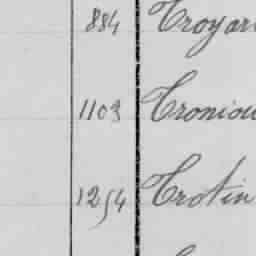 884 Troyar
1103 Croniou
1254 Trotin